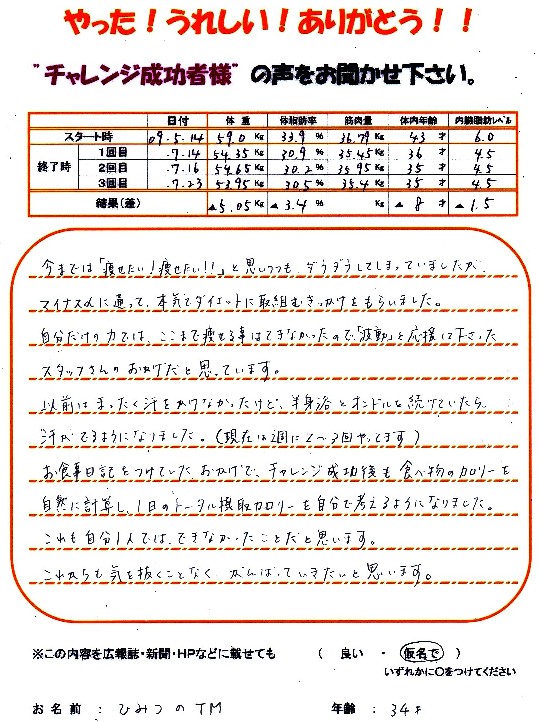 やった！うれしい！ありがとう！！
"チャレンジ成功者様" の声をお聞かせ下さい。
日付 体重 体脂肪率 筋肉量 体内年齢 内臓脂肪レベル
スタート時 09.5.14 59.0 Kg 33.9 % 36.79 Kg 43 才 6.0
終了時 1回目 .7.14 54.35 Kg 30.9 % 35.45 Kg 36 才 4.5
2回目 .7.16 54.65 Kg 30.2 % 35.95 Kg 35 才 4.5
3回目 .7.23 53.95 Kg 30.5 % 35.4 Kg 35 才 4.5
結果(差) ▲5.05 Kg ▲3.4 % Kg ▲8 才 ▲1.5
今までは「痩せたい！痩せたい！！」と思いつつも、ダラダラしてしまっていましたが、
マイナスαに通って、本気でダイエットに取組むきっかけをもらいました。
自分だけの力では、ここまで痩せる事はできなかったので「波動」と応援して下さった
スタッフさんのおかげだと思っています。
以前はまったく汗をかけなかったけど、半身浴とオンドルを続けていたら、
汗がでるようになりました。(現在は週に2～3回やってます)
お食事日記をつけていたおかげで、チャレンジ成功後も食べ物のカロリーを
自然に計算し、1日のトータル摂取カロリーを自分で考えるようになりました。
これも自分1人では、できなかったことだと思います。
これからも気を抜くことなく、がんばっていきたいと思います。
※この内容を広報誌・新聞・HPなどに載せても ( 良い ・ 仮名で )
いずれかに○をつけてください
お名前 : ひみつのTM 年齢 : 34才